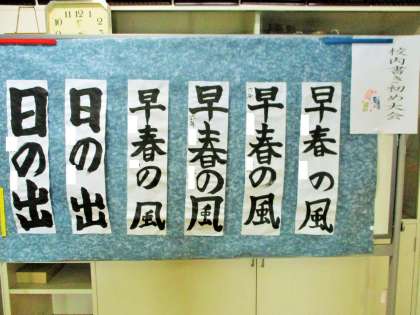 校内書き初め大会
早春の風
早春の風
早春の風
早春の風
日の出
日の出